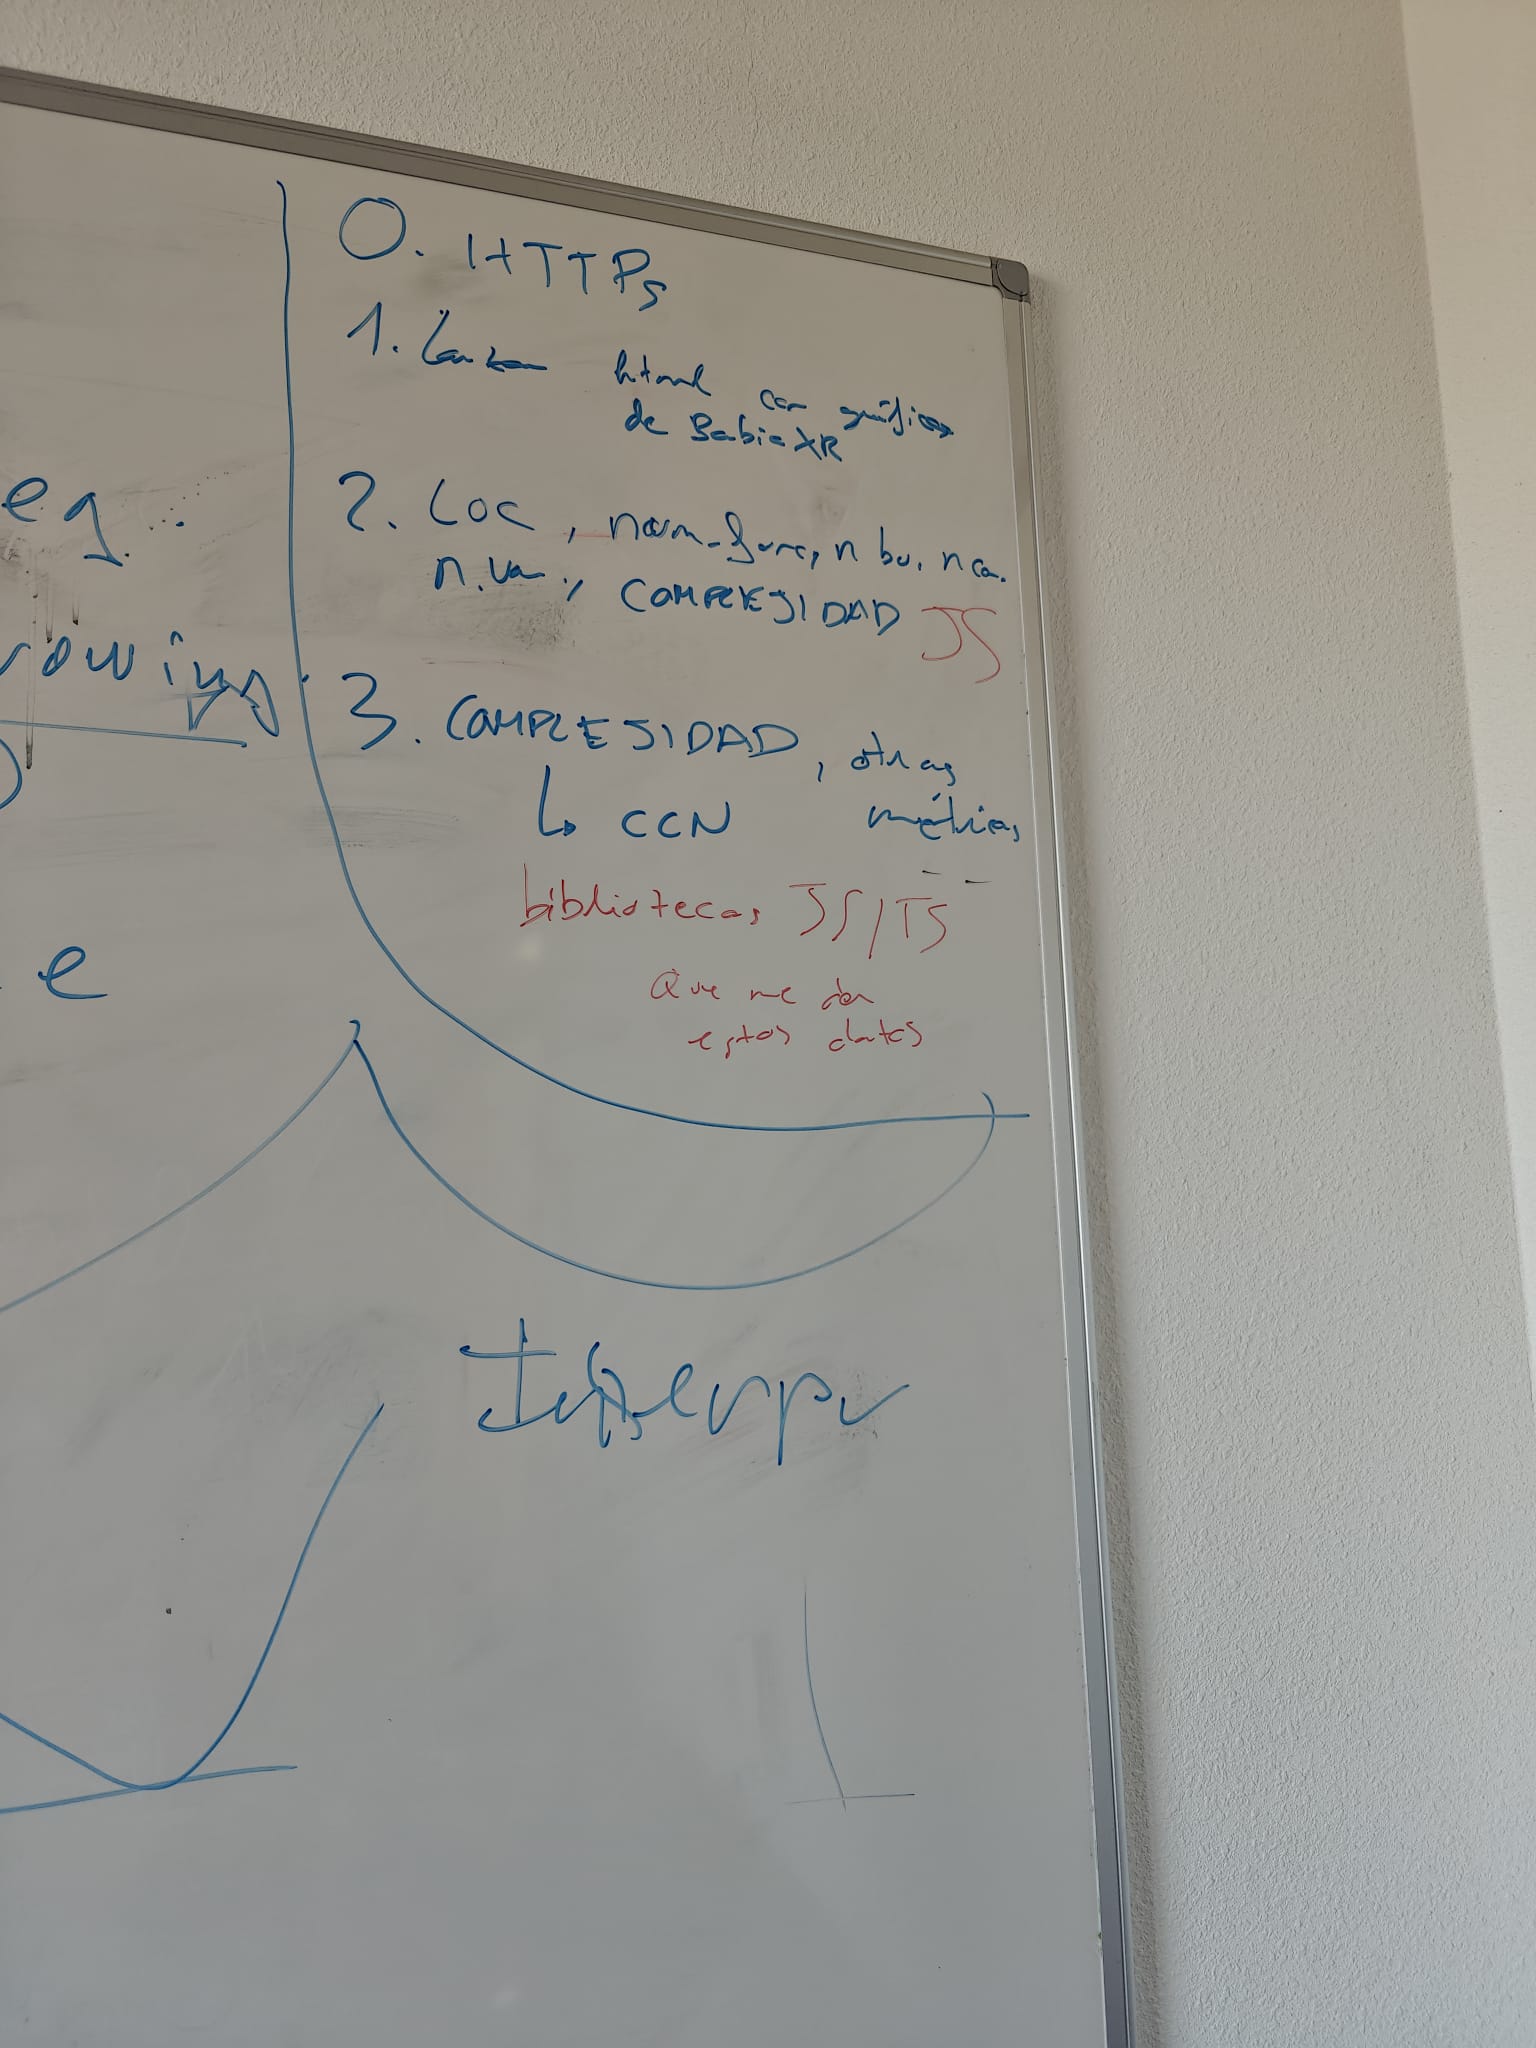 0. HTTPs
1. Lanzar html con gráficos
de BabiaXR
2. LOC, num_func, n bu, n co.
n.va., COMPLEJIDAD JS
3. COMPLEJIDAD, otras
↳ CCN métricas
bibliotecas JS/TS
Que me den
estos datos
eg
rowing
e